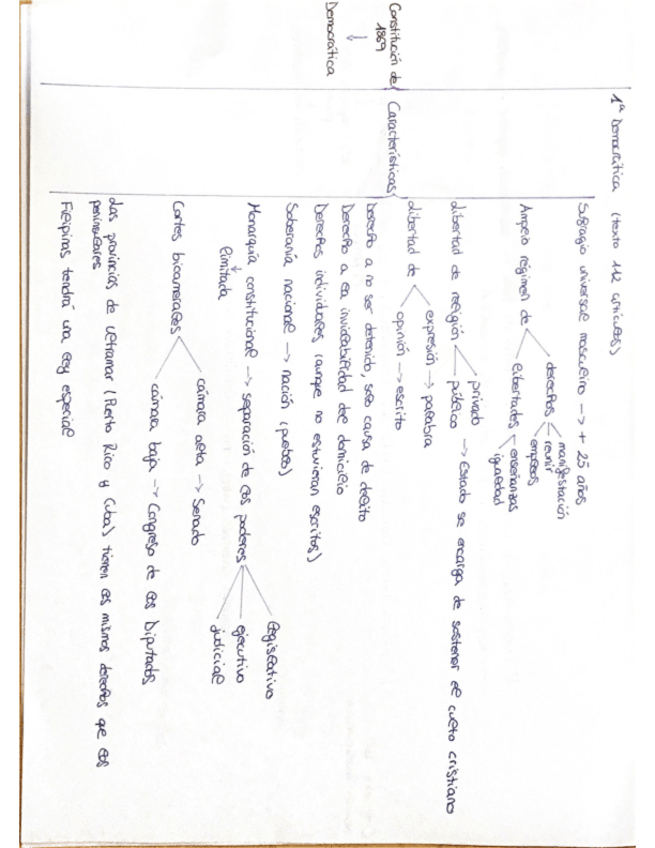 Constitución de
1869
↓
Democrática
Características
1ª Democrática (texto 112 artículos)
Sufragio universal masculino -> + 25 años
Amplio régimen de
derechos
manifestación
reunir
empleos
libertades
enseñanzas
igualdad
libertad de religión
privado
público -> Estado se encarga de sostener el culto cristiano
libertad de
expresión -> palabra
opinión -> escrito
Derecho a no ser detenido, solo causa de delito
Derecho a la inviolabilidad del domicilio
Derechos individuales (aunque no estuvieran escritos)
Soberanía nacional -> nación (pueblo)
Monarquía constitucional -> separación de los poderes
↓
limitada
legislativo
ejecutivo
judicial
Cortes bicamerales
cámara alta -> Senado
cámara baja -> Congreso de los Diputados
Las provincias de ultramar (Puerto Rico y Cuba) tienen los mismos derechos que los
peninsulares
Filipinas tendrá una ley especial